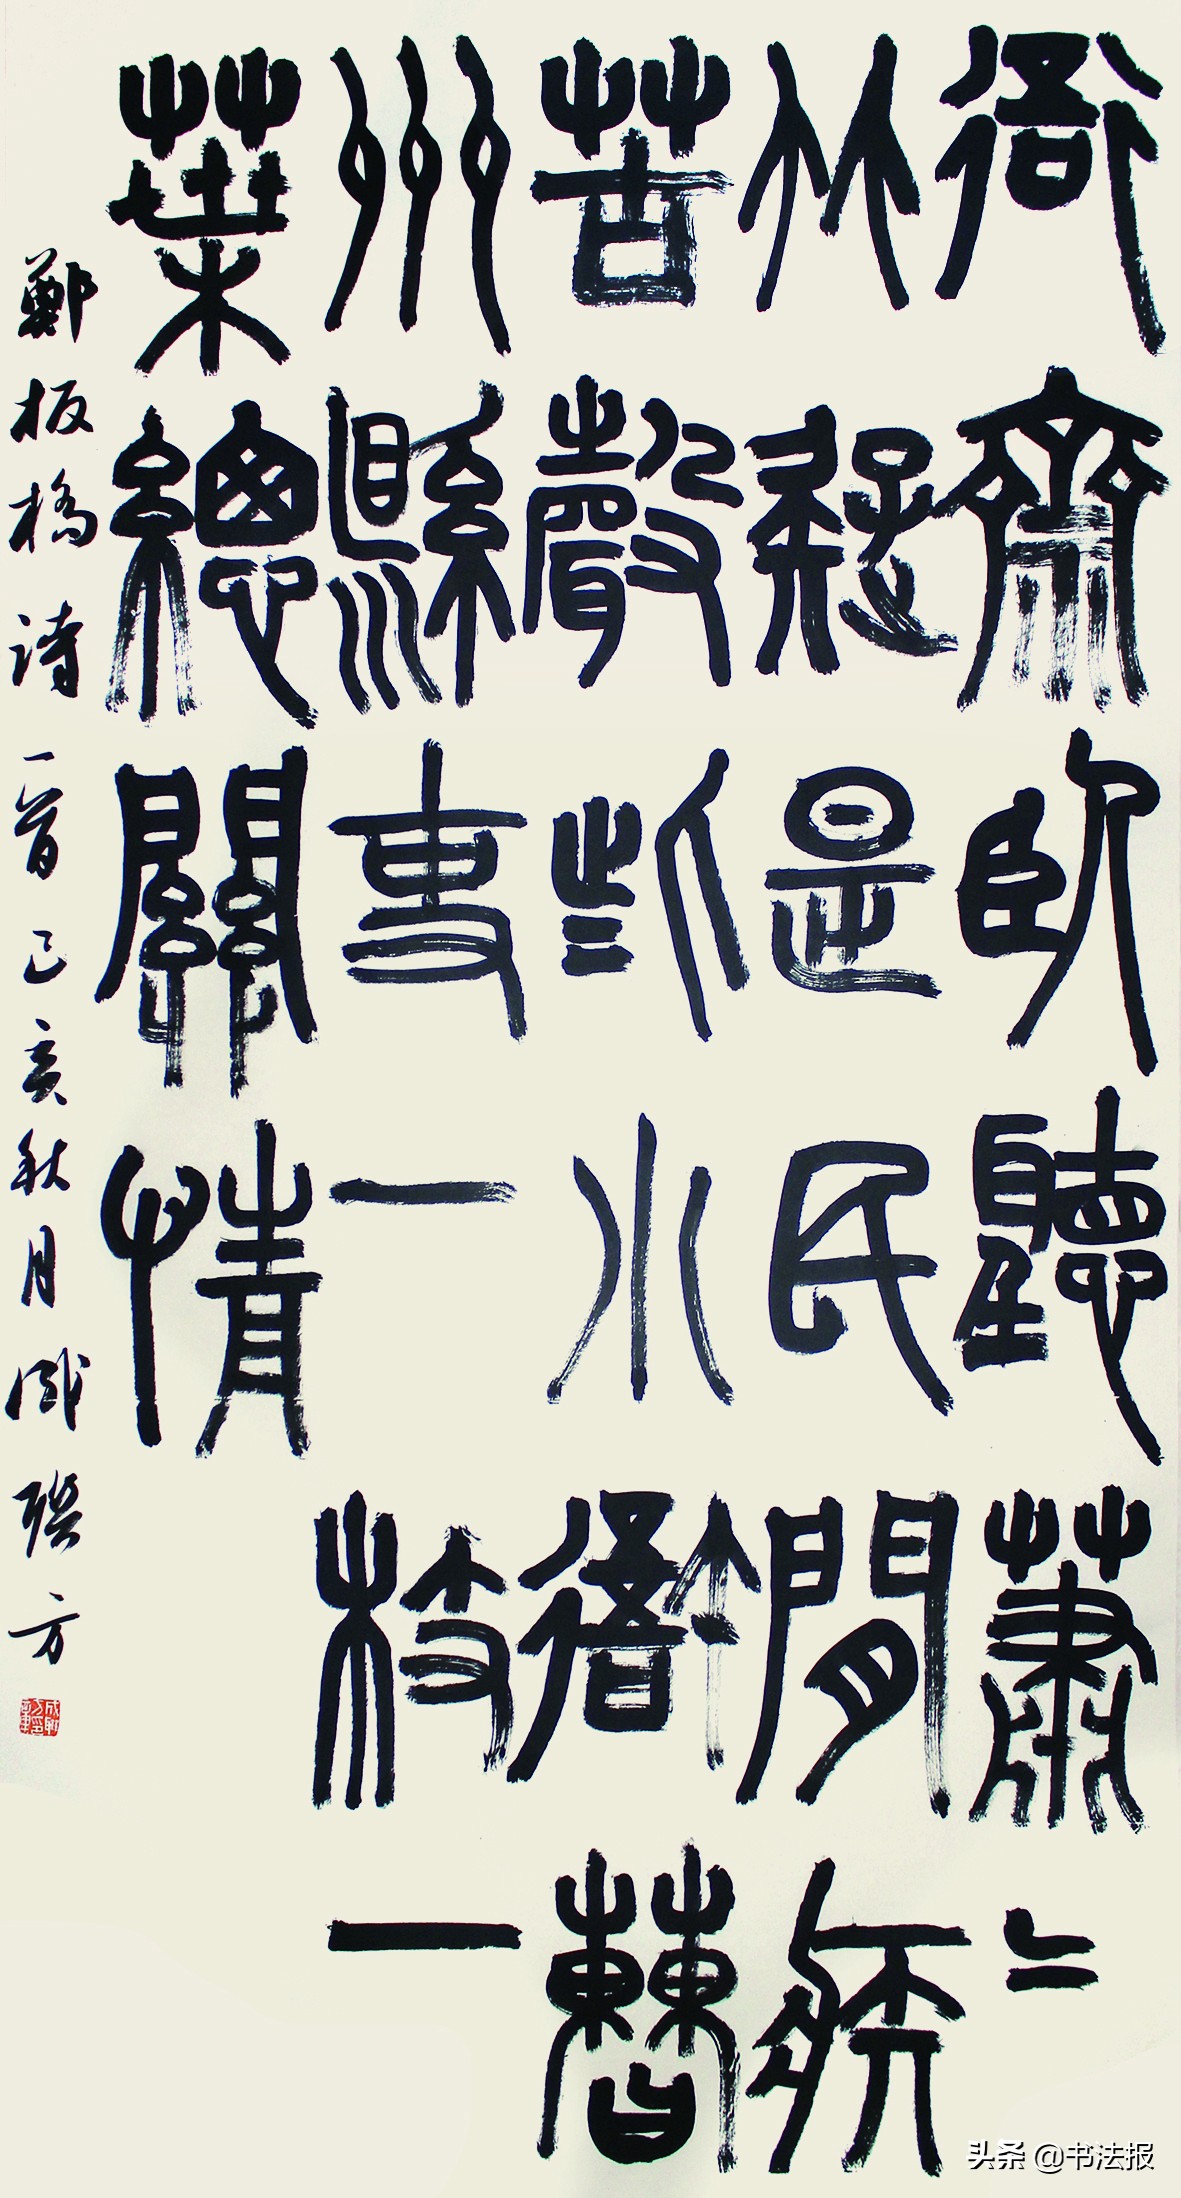 衙齋臥聽蕭〻
竹疑是民間疾
苦聲些小衙曹
州縣吏一枝一
葉總關情
鄭板橋詩一首己亥秋月成聯方
头条 @书法报